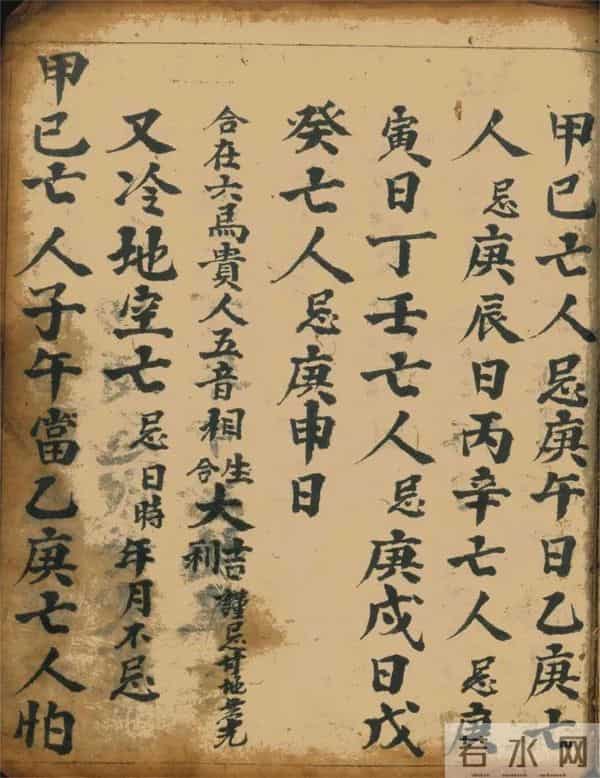 甲己亡人忌庚午日乙庚亡
人忌庚辰日丙辛亡人忌庚
寅日丁壬亡人忌庚戌日戊
癸亡人忌庚申日
合在六馬貴人五音相生合大吉利謹忌廿地無光
又冷地空亡忌日時年月不忌
甲己亡人子午當乙庚亡人怕
若水网